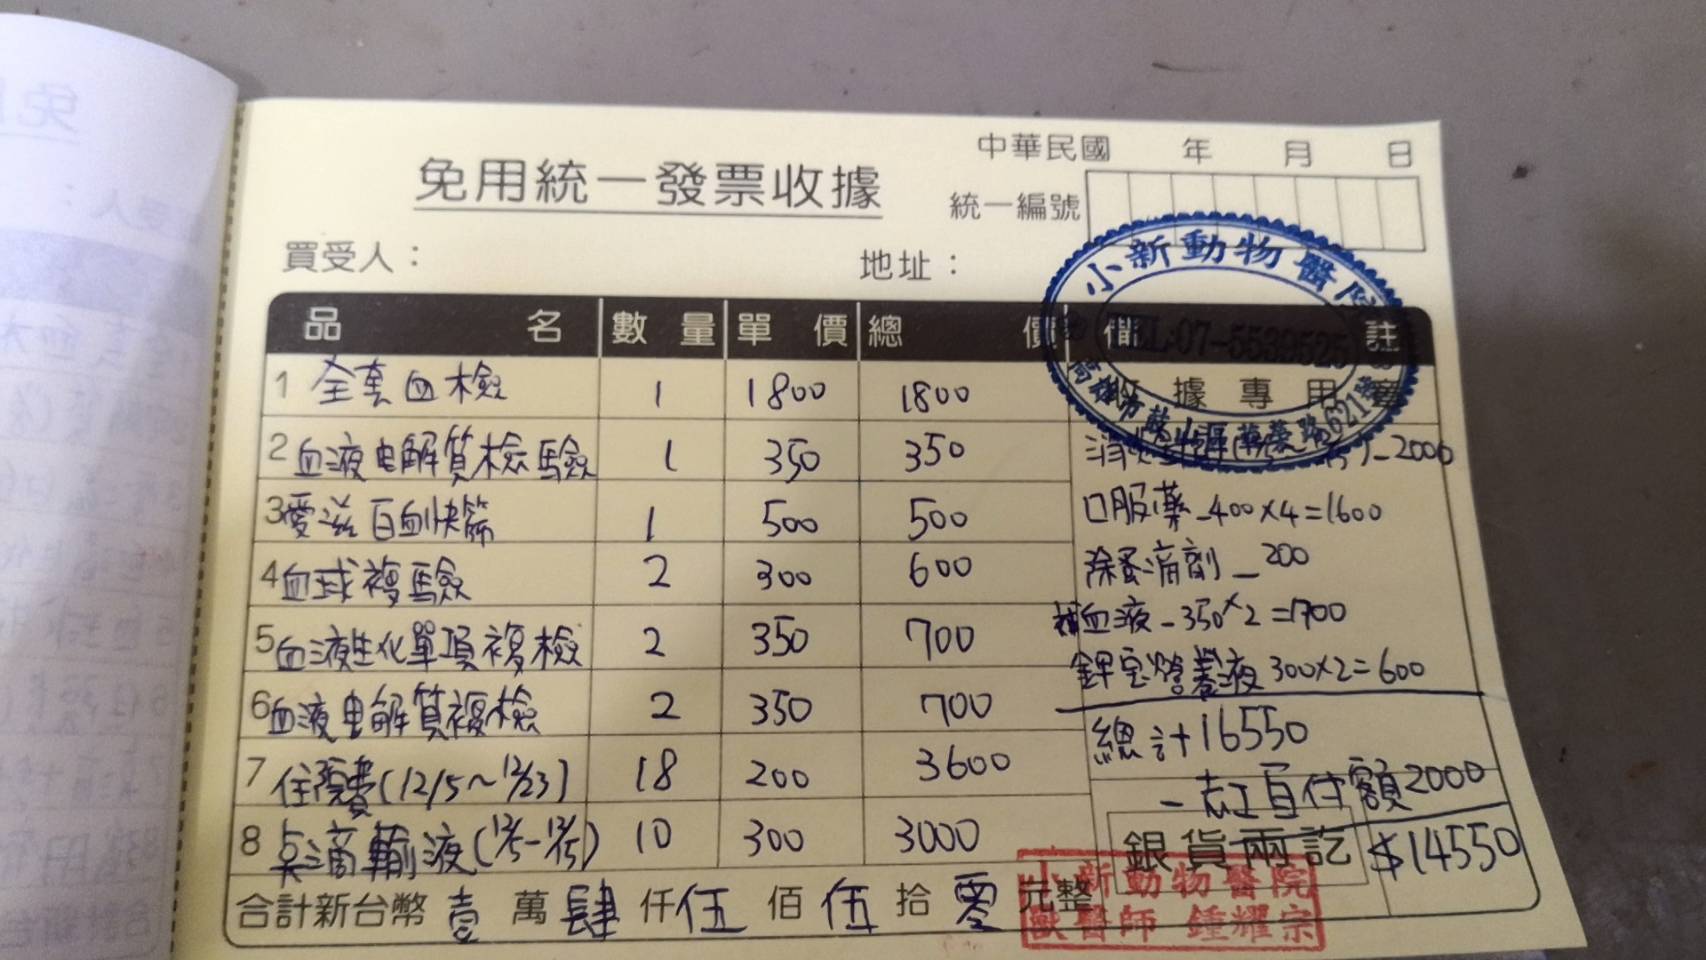 中華民國 年 月 日
免用統一發票收據
統一編號
買受人： 地址：
小新動物醫院
TEL:07-5539525
收據專用章
品名 數量 單價 總價 備註
1 全套血檢 1 1800 1800
2 血液电解質檢驗 1 350 350
3 愛滋白血快篩 1 500 500
4 血球複驗 2 300 600
5 血液生化單項複檢 2 350 700
6 血液电解質複檢 2 350 700
7 住院費(12/5～12/23) 18 200 3600
8 点滴輸液 10 300 3000
2000
口服藥-400×4=1600
除蚤滴劑-200
補血液-350×2=1700
鉀宝營養液300×2=600
總計+16550
-志工自付額2000
銀貨兩訖 $14550
合計新台幣 壹 萬 肆 仟 伍 佰 伍 拾 零 元整
小新動物醫院
獸醫師 鍾耀宗